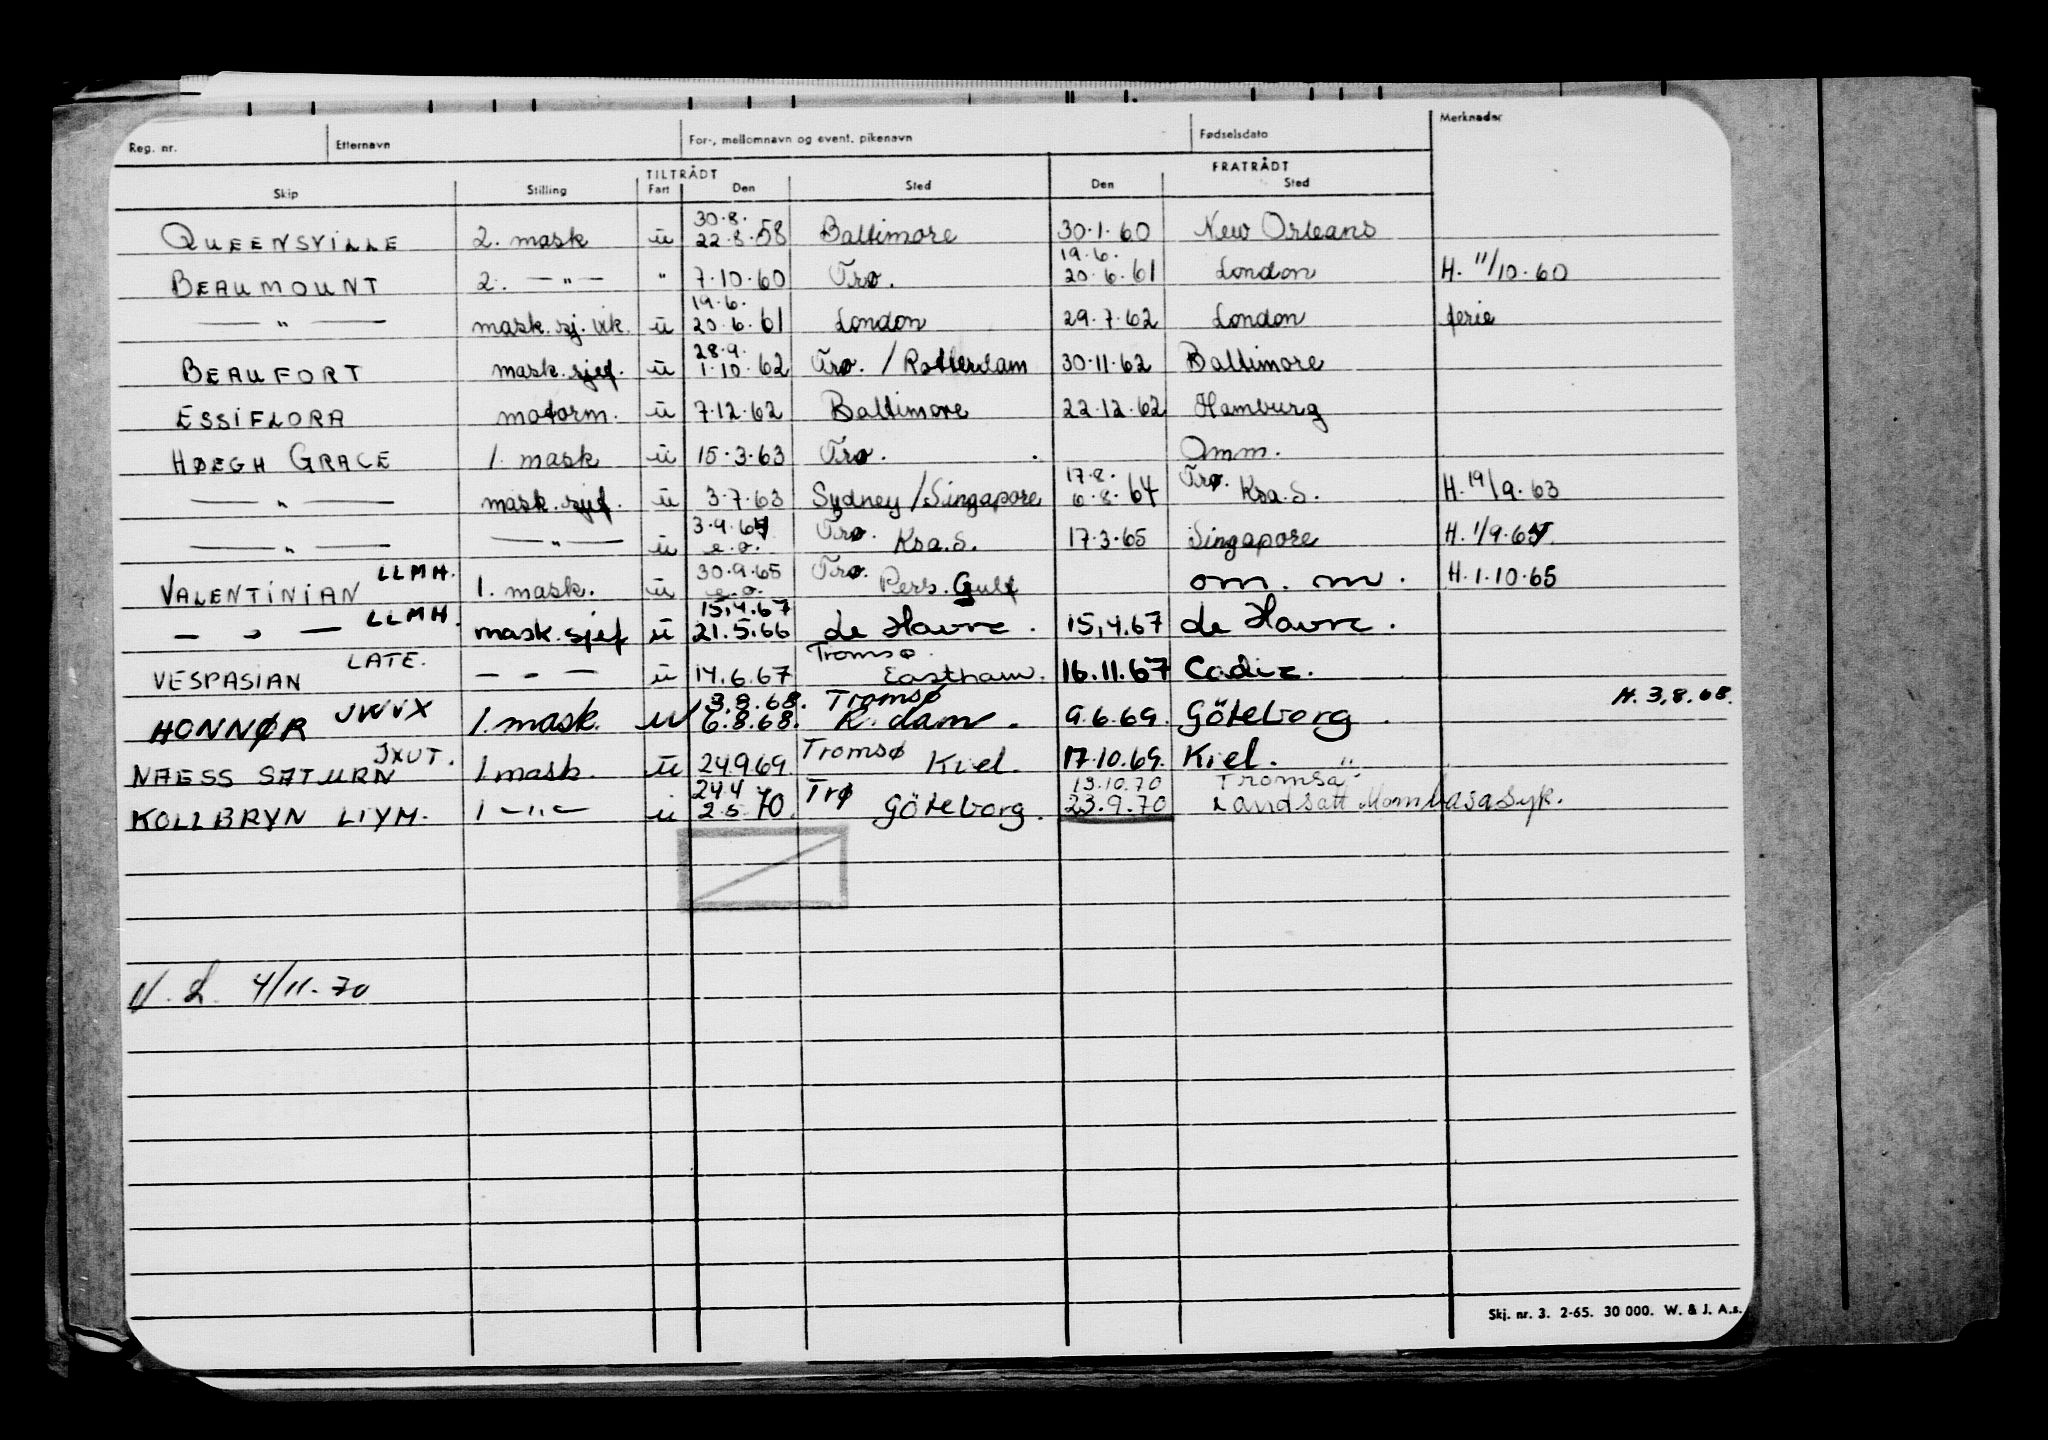 Reg. nr. Etternavn For-, mellomnavn og event. pikenavn Fødselsdato Merknader
TILTRÅDT FRATRÅDT
Skip Stilling Fart Den Sted Den Sted
30.8.
QUEENSVILLE 2. mask ū 22.8.58 Baltimore 30.1.60 New Orleans
19.6.
BEAUMOUNT 2. — " — " 7.10.60 Trø. 20.6.61 London H. 11/10.60
19.6.
— " — mask. sj. vik. ū 20.6.61 London 29.7.62 London ferie
28.9.
BEAUFORT mask. sjef. ū 1.10.62 Trø. / Rotterdam 30.11.62 Baltimore
ESSIFLORA motorm. ū 7.12.62 Baltimore 22.12.62 Hamburg
HØEGH GRACE 1. mask ū 15.3.63 Trø. Omm.
17.8. Trø.
— " — mask. sjef. ū 3.7.63 Sydney/Singapore 6.8.64 Ksa. S. H. 19/9.63
3.9.64 Trø.
— " — — " — ū e.o. Ksa. S. 17.3.65 Singapore H. 1/9.64
LLMH. 30.9.65 Trø.
VALENTINIAN 1. mask. ū e.o. Pers. Gulf om. m. H. 1.10.65
LLMH. 15.4.67
— " — mask. sjef ū 21.5.66 de Havre. 15.4.67 de Havre.
LATE. Tromsø.
VESPASIAN — - — ū 14.6.67 Eastham. 16.11.67 Cadiz.
3.8.68. Tromsø H. 3.8.68.
HONNØR JWVX 1. mask. u 6.8.68. R.dam. 9.6.69. Göteborg.
JXUT. Tromsø
NAESS SATURN 1 mask. ū 24.9.69. Kiel. 17.10.69. Kiel. "
24.4 Trø 13.10.70 Tromsø
KOLLBRYN LIYM. 1 — " — ū 2.5.70. Göteborg. 23.9.70 Landsatt Mombasa syk.
N. L. 4/11.70
Skj. nr. 3. 2-65. 30 000. W. & J. A.s.